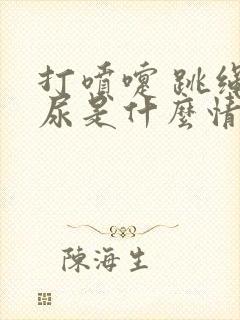 打噴嚏 跳繩
尿是什麼情
陳海生